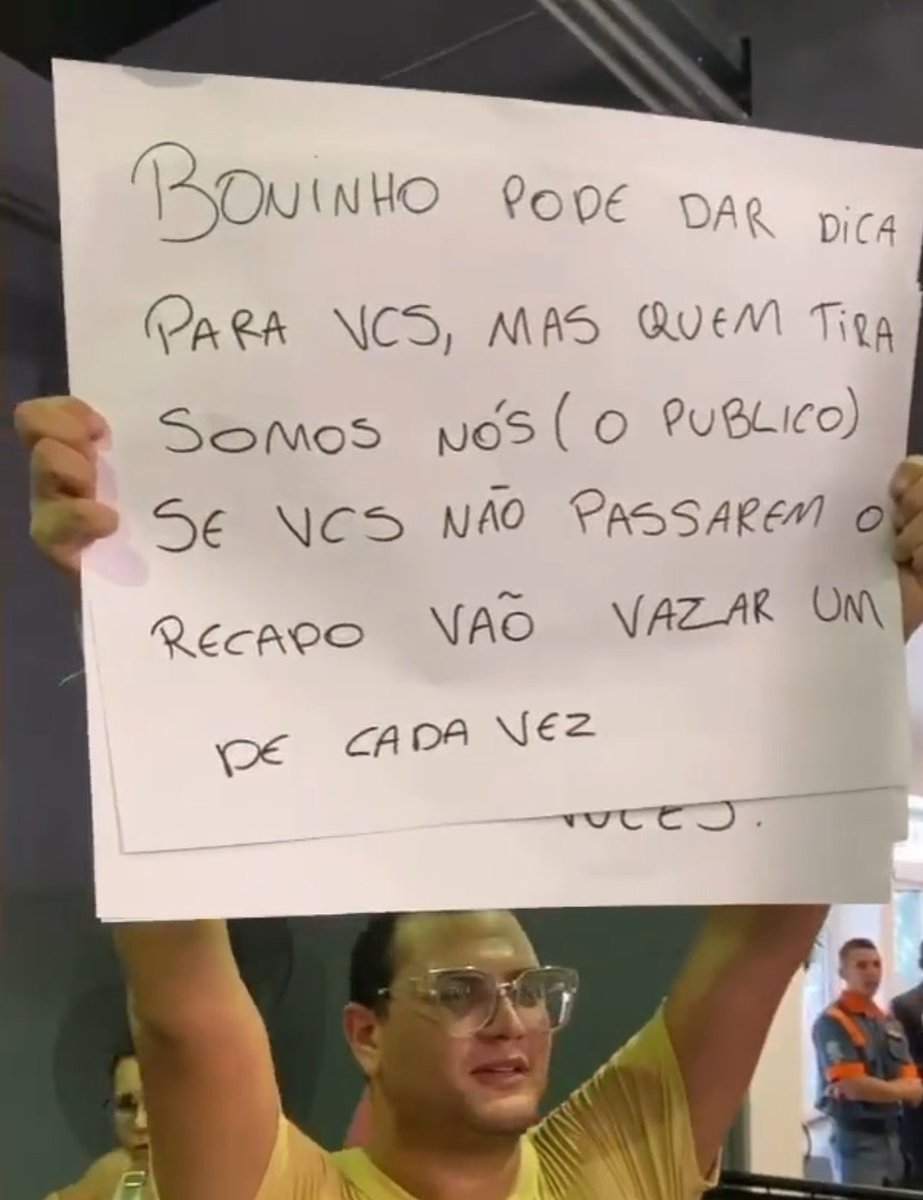 BONINHO PODE DAR DiCA
PARA VCS, MAS QUEM TiRA
SOMOS NÓS ( O PUBLICO)
SE VCS NÃO PASSAREM O
RECADO VAÕ VAZAR UM
DE CADA VEZ
VOCÊS.